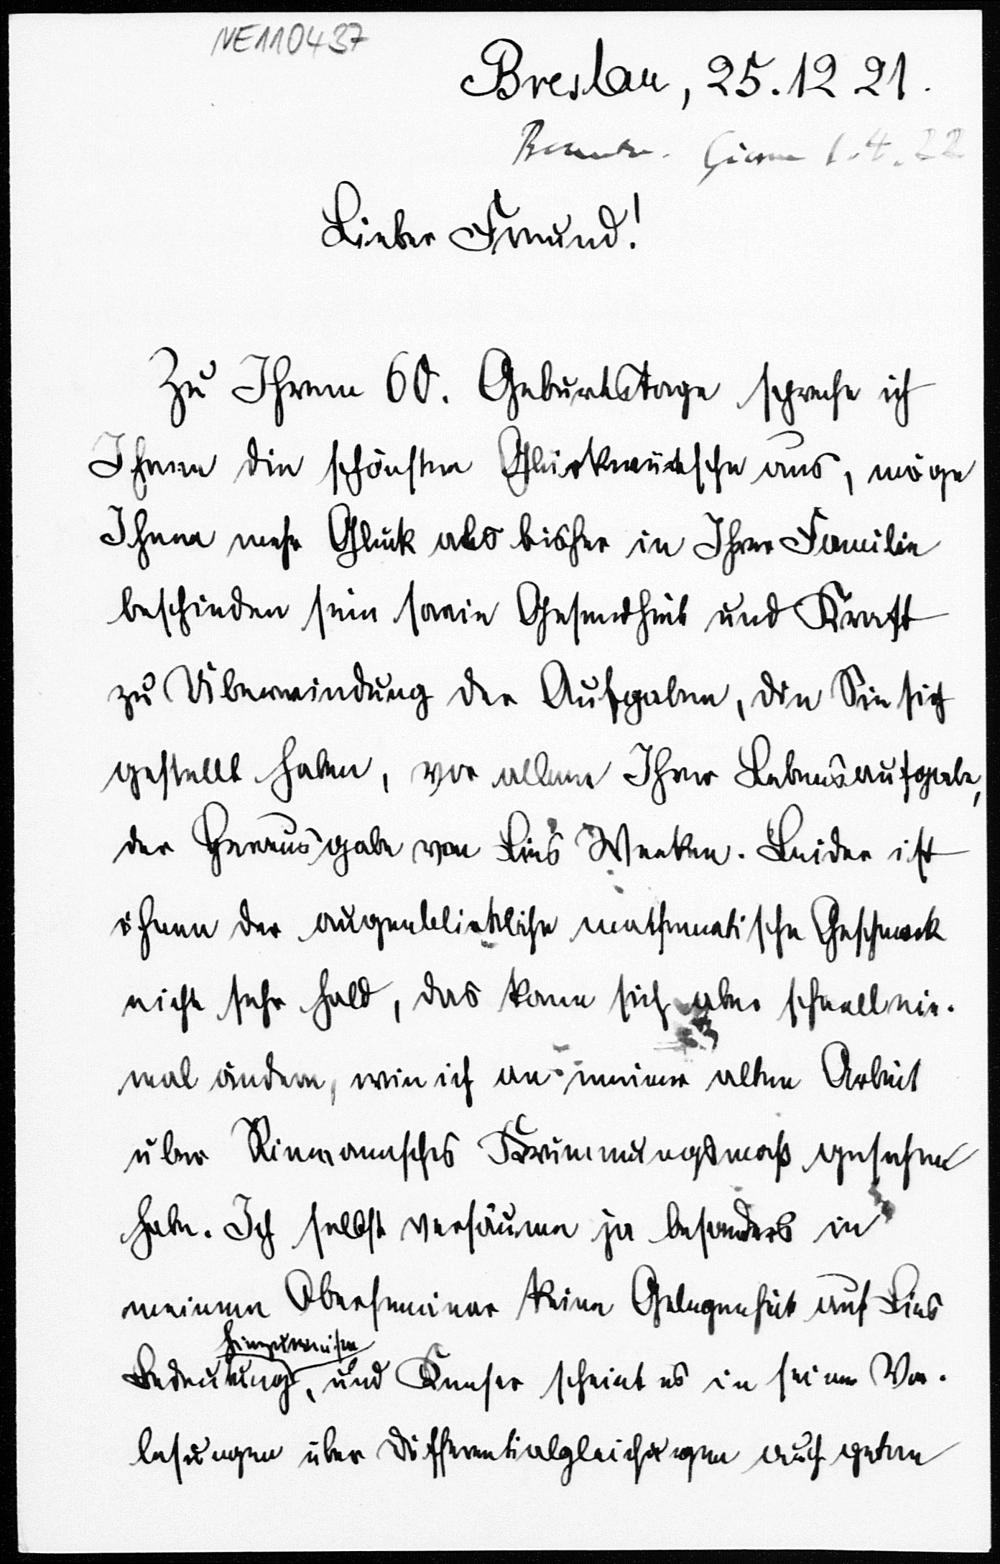 NE110437
Breslau, 25.12 21.
1.4.22
Lieber Freund!
Zu Ihrem 60. Geburtstage spreche ich
Ihnen die schönsten Glückwünsche aus, möge
Ihnen mehr Glück als bisher in Ihrer Familie
beschieden sein sowie Gesundheit und Kraft
zu Überwindung der Aufgaben, die Sie sich
gestellt haben, vor allem Ihrer Lebensaufgabe,
der Herausgabe von Lies Werken. Leider ist
ihnen der augenblickliche mathematische Geschmack
nicht sehr hold, das kann sich aber schnell ein-
mal ändern, wie ich an meiner alten Arbeit
über Riemannsches Krümmungsmaß gesehen
habe. Ich selbst versäume ja besonders in
meinem Oberseminar keine Gelegenheit auf Lies
hinzuweisen
Bedeutung, und Kneser scheint es in seinen Vor-
lesungen über Differentialgleichungen auch getan